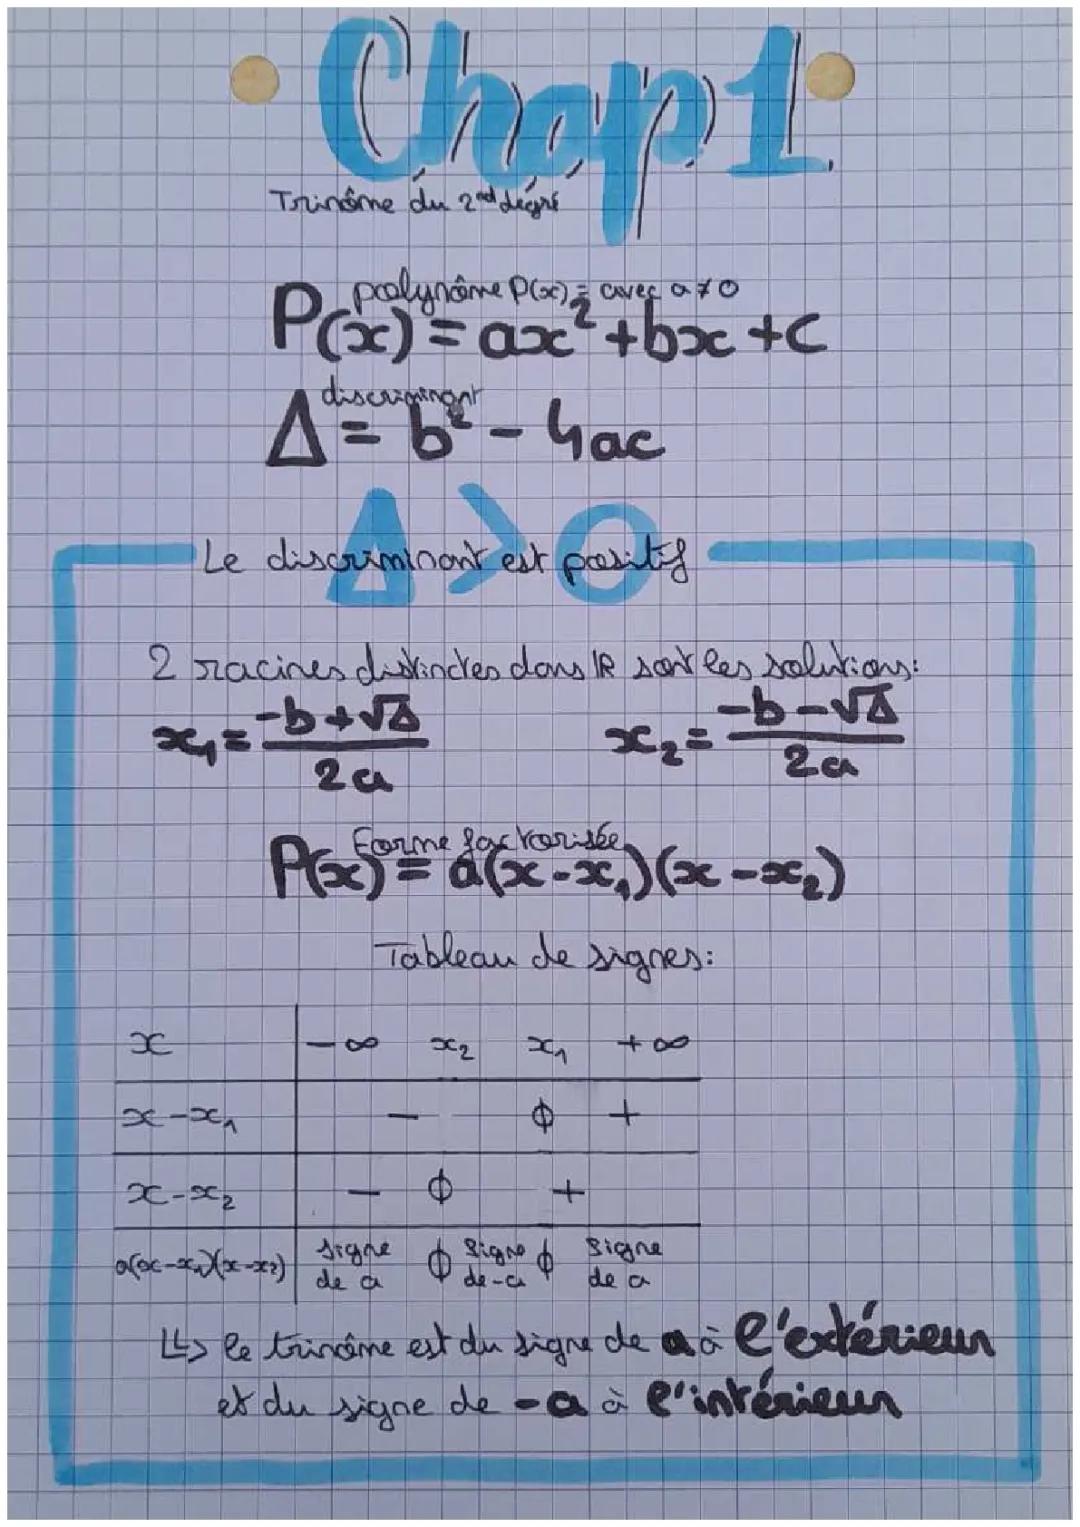 Chap 1
Trinôme du 2nd degré
polynôme P(x) = avec a ≠ 0
P(x) = ax² + bx + c
discriminant
Δ = b² - 4ac
Δ > 0
Le discriminant est positif
2 racines distinctes dans ℝ sont les solutions:
x₁ = (-b + √Δ) / 2a    x₂ = (-b - √Δ) / 2a
Forme factorisée
P(x) = a(x - x₁)(x - x₂)
Tableau de signes:
x | -∞ x₂ x₁ +∞
x - x₁ | - 0 +
x - x₂ | - 0 +
a(x-x₁)(x-x₂) | signe de a 0 signe de -a 0 signe de a
↳ le trinôme est du signe de a à l'extérieur
et du signe de -a à l'intérieur